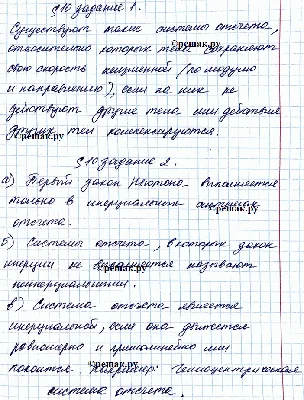 §10 задание 1.
Существуют такие системы отсчета,
относительно которых тела сохраняют
свою скорость неизменной (по модулю
и направлению), если на них не
действуют другие тела или действия
других тел компенсируются.
§10 задание 2.
а) Первый закон Ньютона выполняется
только в инерциальных системах
отсчета.
б) Системы отсчета, в которых закон
инерции не выполняется называют
неинерциальными.
в) Система отсчета является
инерциальной, если она движется
равномерно и прямолинейно или
покоится. Например: Гелиоцентрическая
система отсчета.
©решак.ру
©решак.ру
©решак.ру
©решак.ру
©решак.ру
©решак.ру